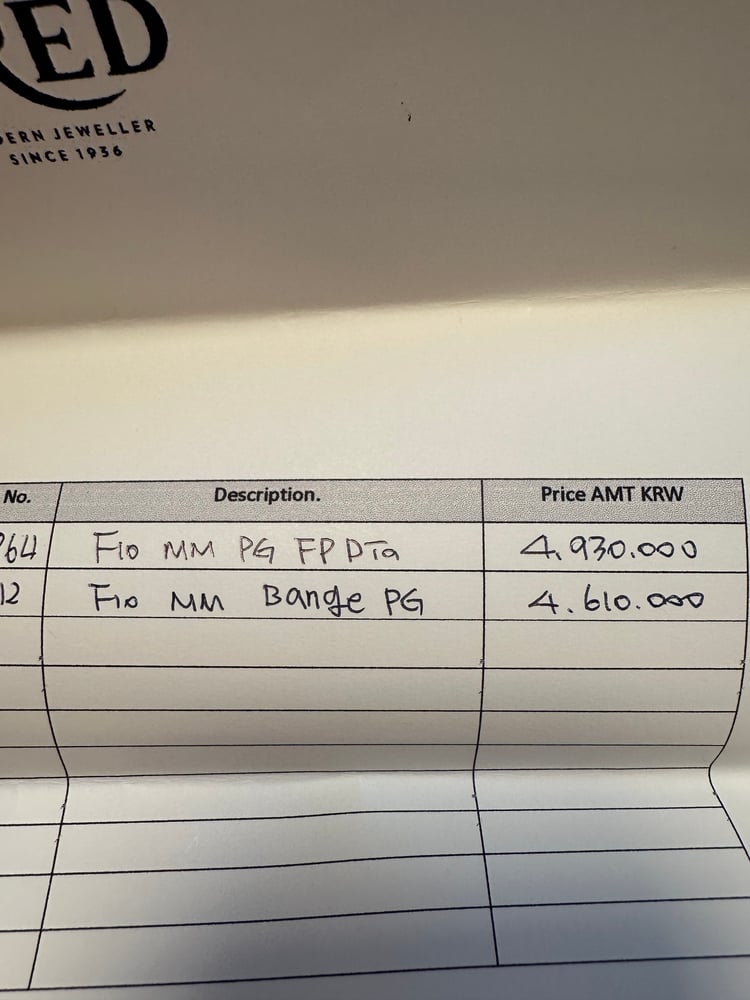 RED
DERN JEWELLER
SINCE 1936
No. Description. Price AMT KRW
764 F10 MM PG FP DTa 4.930.000
12 F10 MM Bange PG 4.610.000